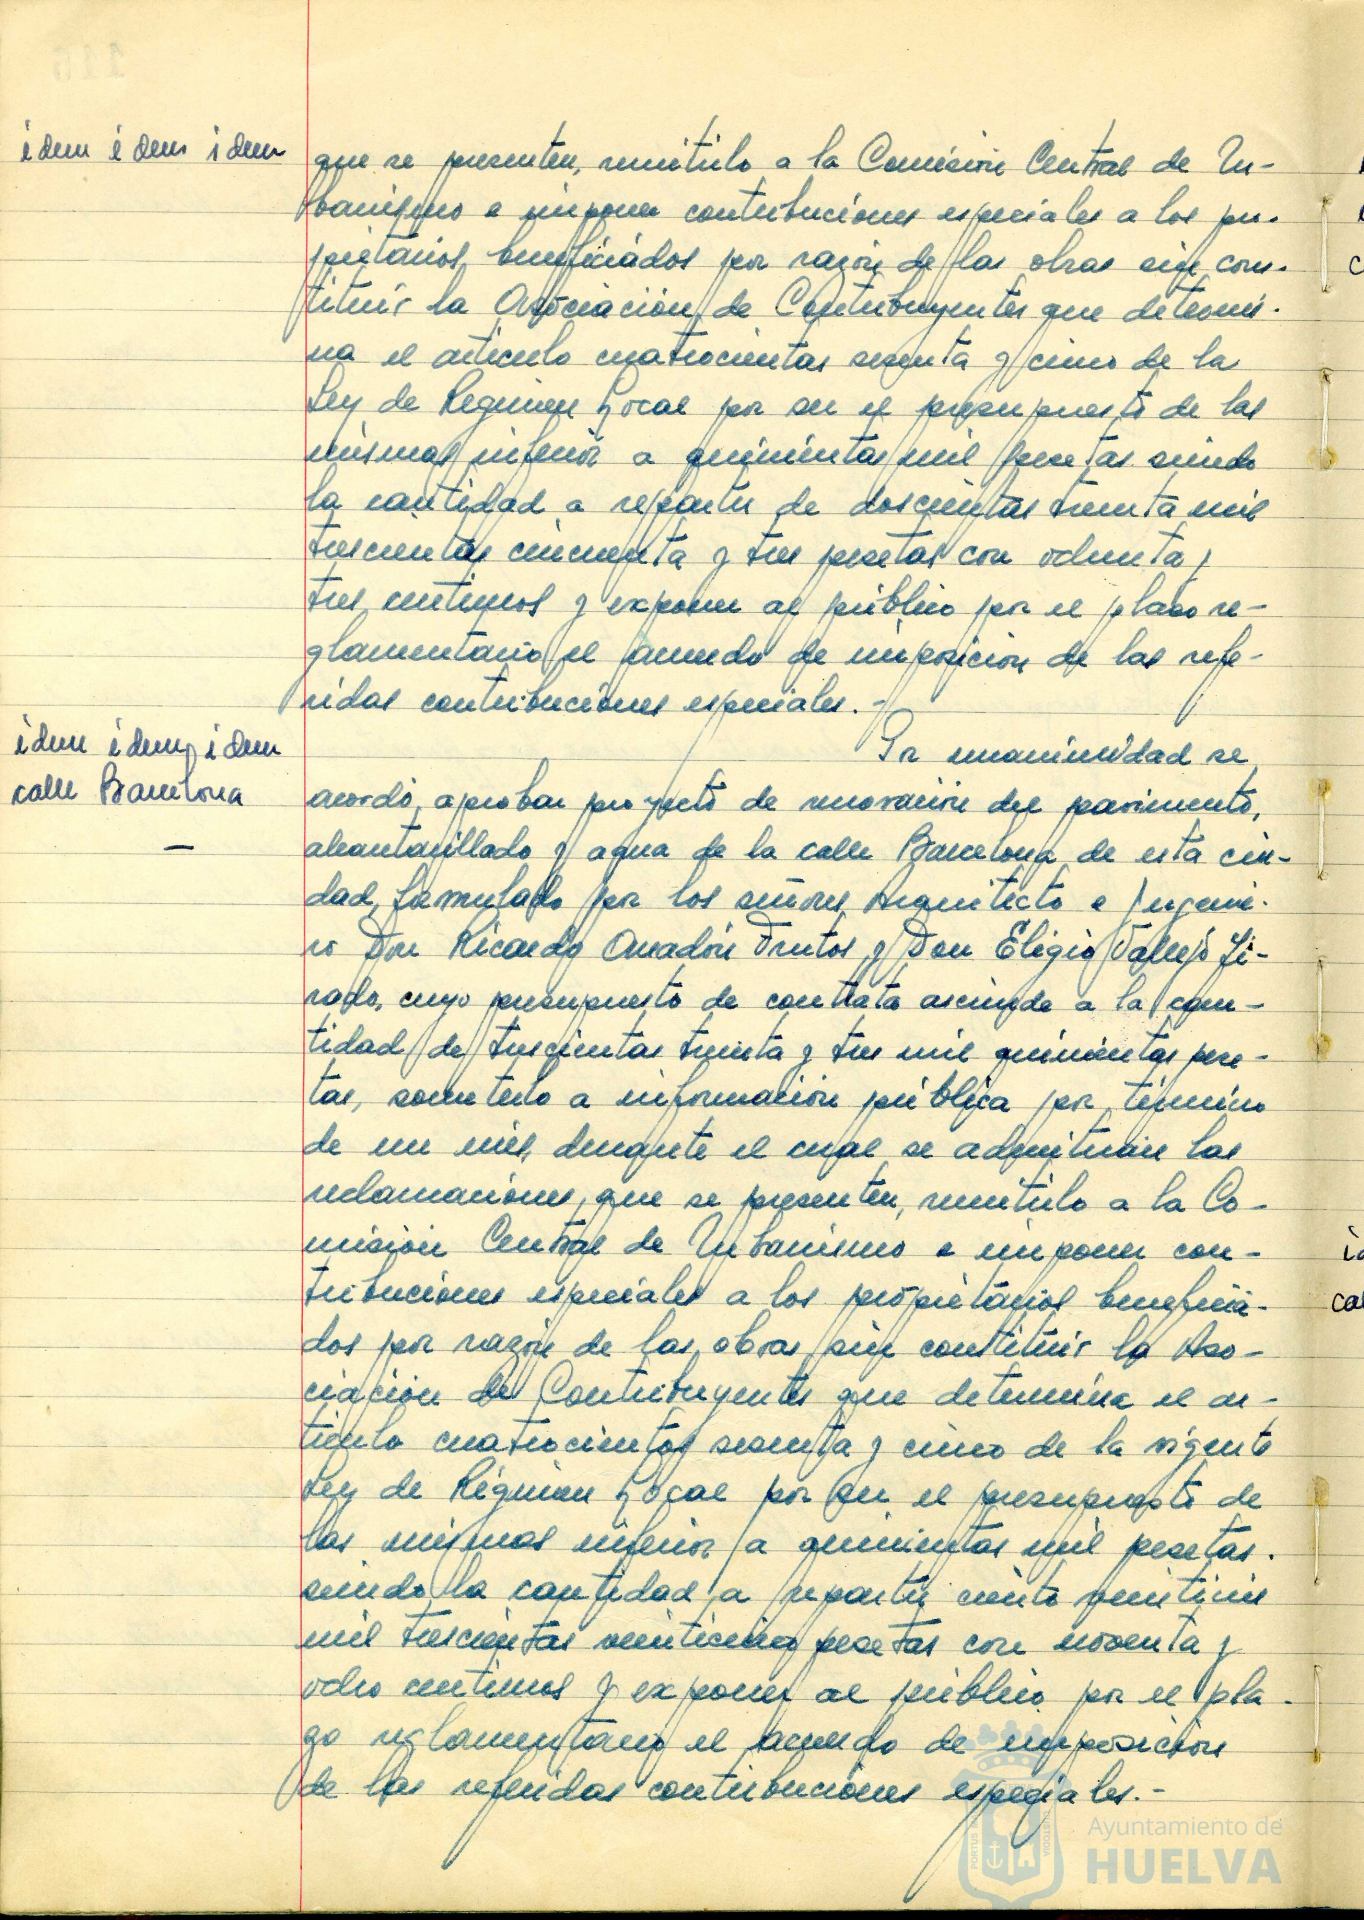 idem idem idem
que se presenten, remitirlo a la Comisión Central de Ur-
banismo e imponer contribuciones especiales a los pro-
pietarios beneficiados por razón de las obras sin cons-
tituir la Asociación de Contribuyentes que determi-
na el artículo cuatrocientos sesenta y cinco de la
Ley de Régimen Local por ser el presupuesto de las
mismas inferior a quinientas mil pesetas siendo
la cantidad a repartir de doscientas treinta mil
trescientas cincuenta y tres pesetas con ochenta y
tres centimos y exponer al público por el plazo re-
glamentario el acuerdo de imposición de las refe-
ridas contribuciones especiales.-
idem idem idem
calle Barcelona
—
Por unanimidad se
acordó, aprobar proyecto de renovación del pavimento,
alcantarillado y agua de la calle Barcelona de esta ciu-
dad, formulado por los señores Arquitecto e Ingenie-
ro Don Ricardo Anadón Frutos y Don Eligio Vallejo Ji-
rado, cuyo presupuesto de contrata asciende a la can-
tidad de trescientas treinta y tres mil quinientas pese-
tas, someterlo a información pública por término
de un mes, durante el cual se admitirán las
reclamaciones, que se presenten, remitirlo a la Co-
misión Central de Urbanismo e imponer con-
tribuciones especiales a los propietarios beneficia-
dos por razón de las obras sin constituir la Aso-
ciación de Contribuyentes que determina el ar-
tículo cuatrocientos sesenta y cinco de la vigente
Ley de Régimen Local por ser el presupuesto de
las mismas inferior a quinientas mil pesetas.
siendo la cantidad a repartir ciento veintiseis
mil trescientas veinticinco pesetas con noventa y
ocho centimos y exponer al público por el pla-
zo reglamentario el acuerdo de imposición
de las referidas contribuciones especiales.-
Ayuntamiento de
HUELVA